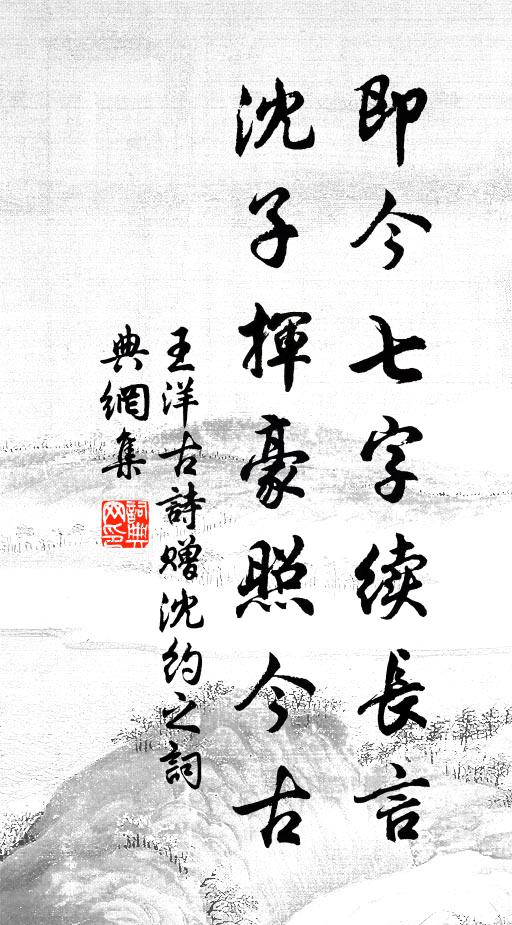 即今七字续長言
沈子揮豪照今古
王洋古詩赠沈约之詞
典網集
詞典
网印